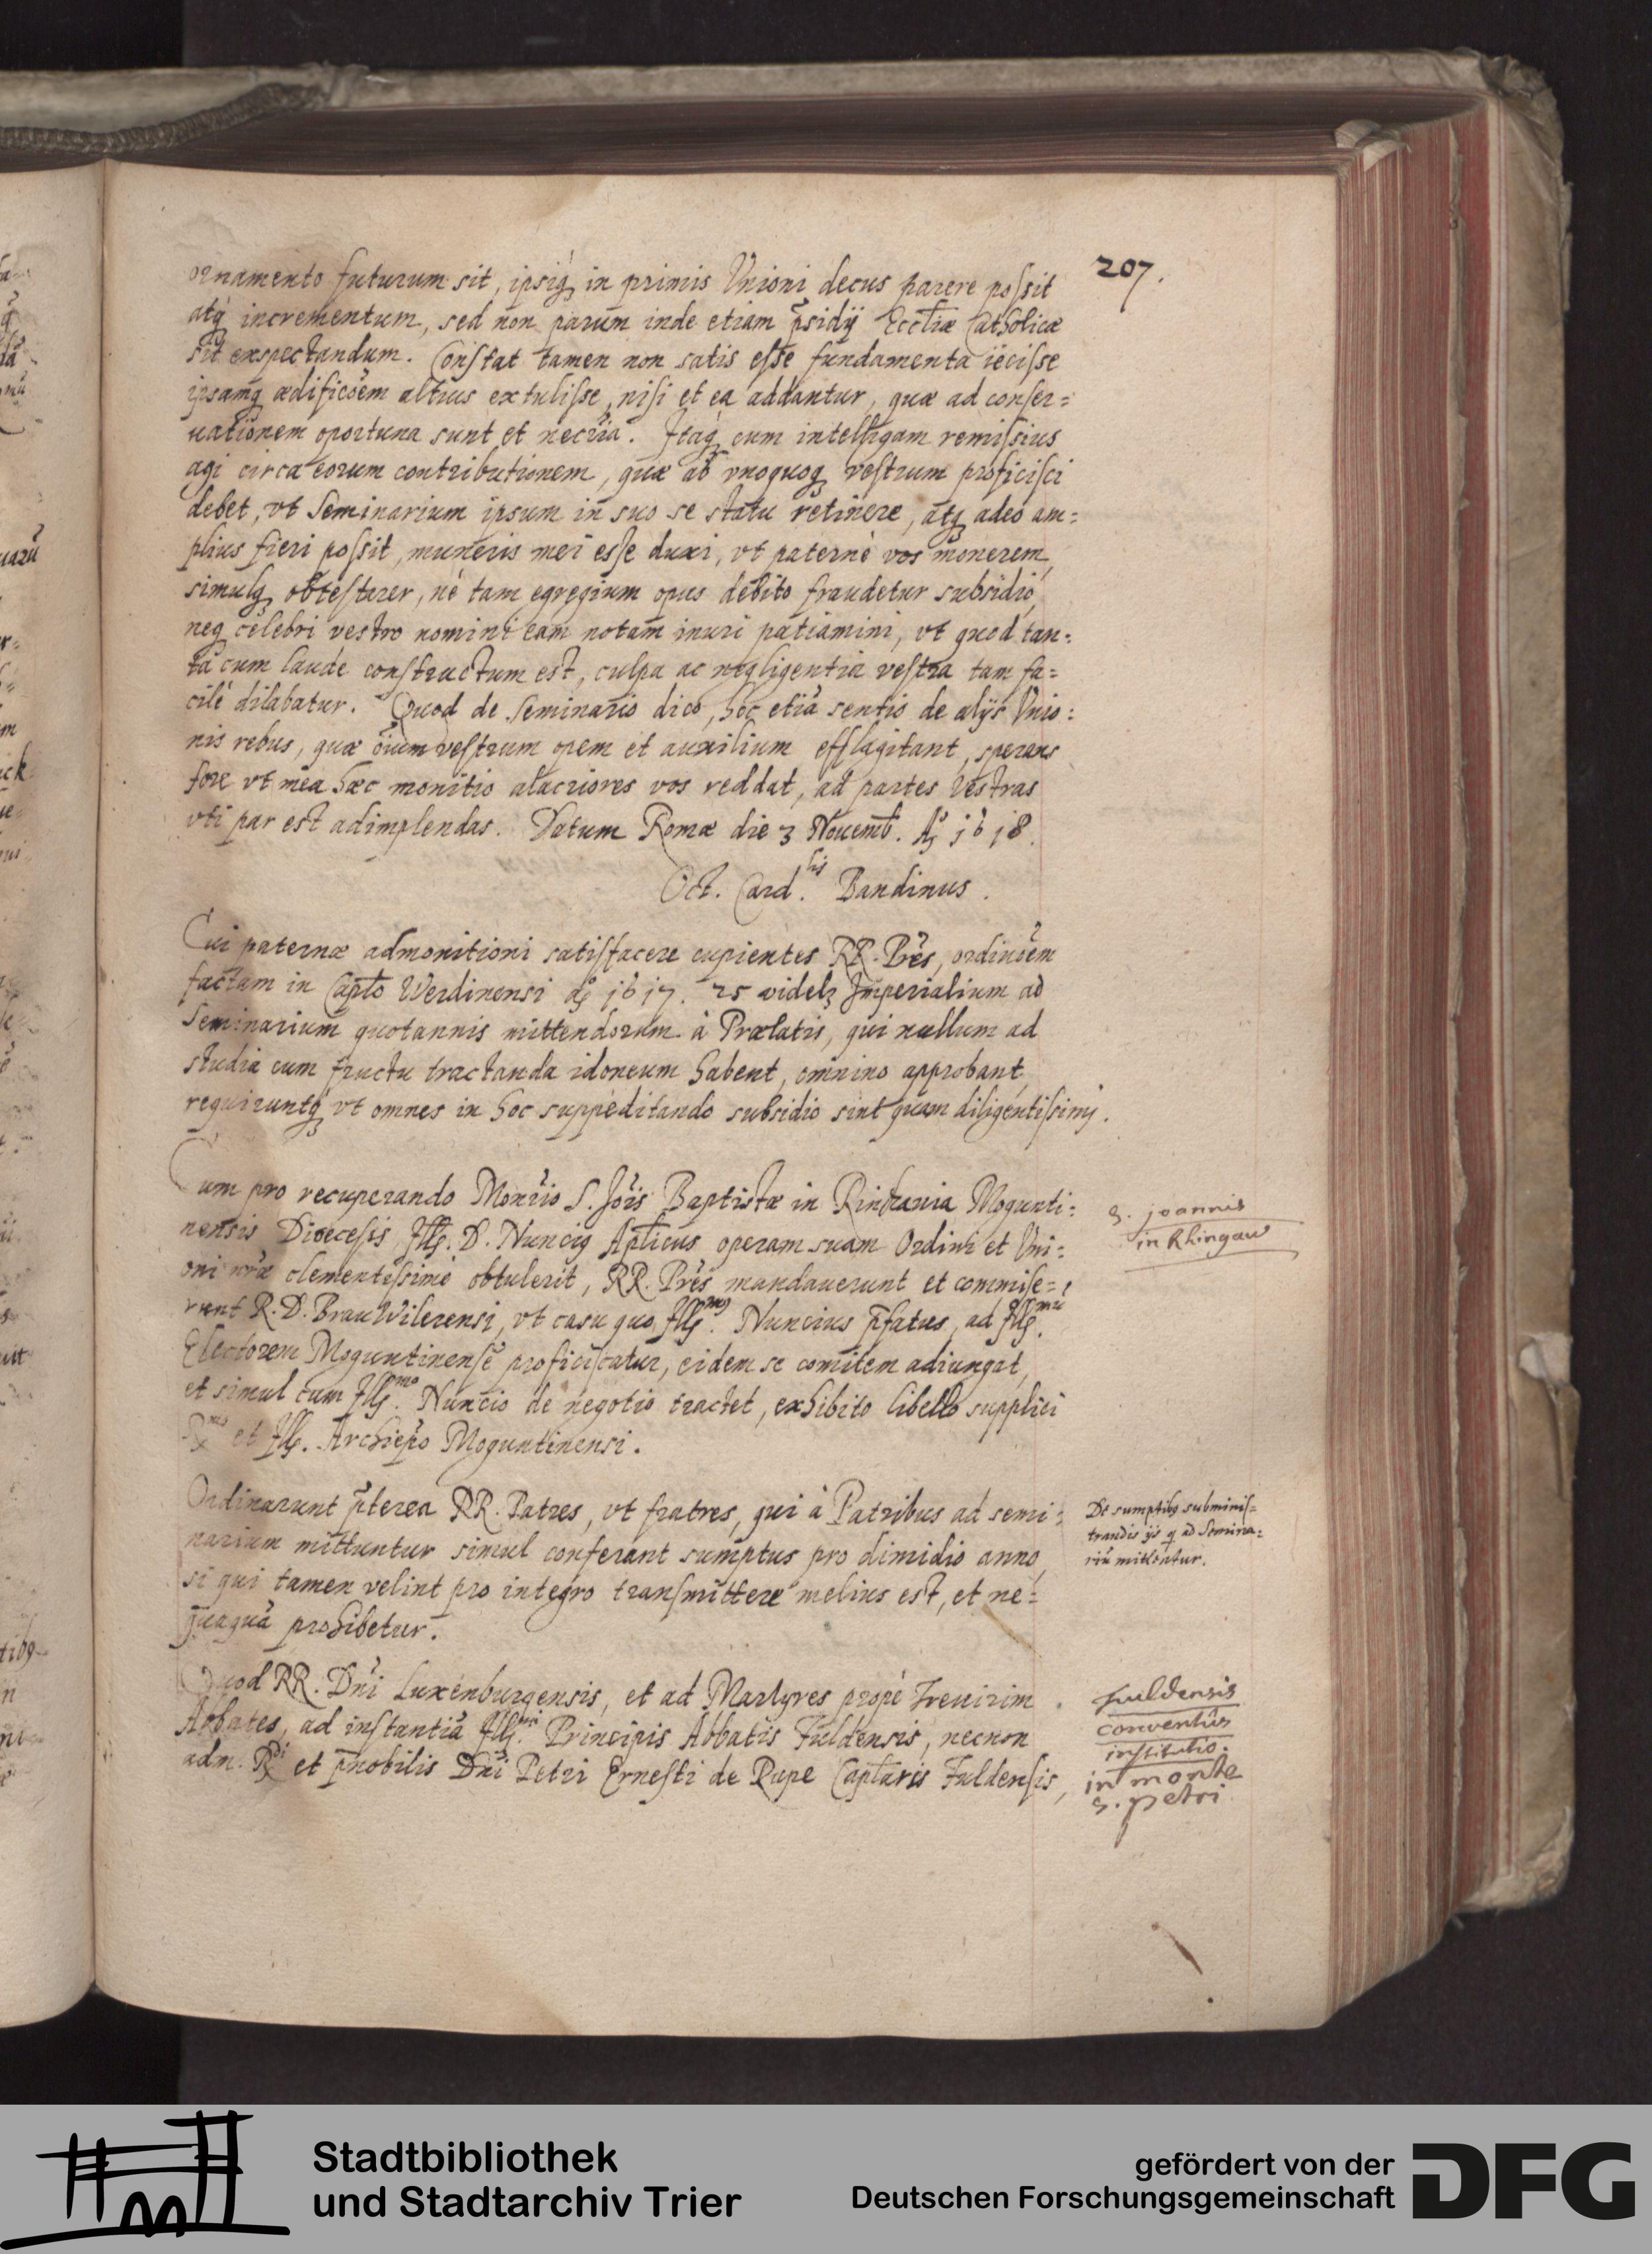 207.
ornamento futurum sit, ipsiq́ꝫ in primis Vnioni decus parere poſsit
atq́ꝫ incrementum, sed non parum inde etiam p̃sidÿ Eccl̃iæ Catholicæ
sit exspectandum. Conſtat tamen non satis eſse fundamenta iëciſse
ipsamq́ꝫ ædificõem altius extuliſse, niſi et ea addantur, quæ ad conſer=
uationem oportuna sunt et neccr̃ia. Itaq́ꝫ cum intelligam remiſsius
agi circa eorum contributionem, quæ ab vnoquoqꝫ veſtrum proficiſci
debet, vt Seminarium ipsum in suo se statu retinere, atqꝫ adeò am=
plius fieri poſsit, muneris mei eſse duxi, vt paternè vos monerem,
simulqꝫ obteſtarer, nè tam egregium opus debito fraudetur subsidio,
neqꝫ celebri vestro nomini eam notam inuri patiamini, vt quod tan=
ta cum laude conſtructum est, culpa ac negligentia veſtra tam fa=
cilè dilabatur. Quod de Seminario dico, hoc etiã sentio de alÿs Vnio=
nis rebus, quæ õium veſtrum opem et auxilium efflagitant, sperans
fore vt mea hæc monitio alacriores vos reddat, ad partes Vestras
vti par est adimplendas. Datum Romæ die 3 Nouemb. Aõ 1618.
Oct. Card.lis Bandinus.
Cui paternæ admonitioni satiſfacere cupientes RR. Prẽs, ordinõem
factam in Capl̃o Werdinensi aõ 1617. 25 videlꝫ Imperialium ad
Seminarium quotannis mittendorum à Prælatis, qui nullum ad
studia cum fructu tractanda idoneum habent, omnino approbant,
requiruntq́ꝫ vt omnes in hoc suppeditando subsidio sint quam diligentiſsimi.
Cum pro recuperando Monr̃io S. Jõis Baptistæ in Rinchauia Mogunti=
nensis Diœcesis Illꝫ. D. Nunciꝰ Apl̃icus operam suam Ordini et Vni=
oni nr̃æ clementiſsimè obtulerit, RR. Prẽs mandauerunt et commiſe=
runt R. D. Brauwilerensi, vt casu quo Illꝫ.mꝰ Nuncius p̃fatus, ad Illꝫ.mũ
Electorem Moguntinensẽ proficiscatur, eidem se comitem adiungat,
et simul cum Illꝫ.mo Nuncio de negotio tractet, exhibito libello supplici
R.mo et Illꝫ. Archiep̃o Moguntinensi.
Ordinarunt p̃terea RR. Patres, vt fratres, qui à Patribus ad semi=
narium mittuntur simul conferant sumptus pro dimidio anno,
si qui tamen velint pro integro tranſmittere melius est, et ne=
quaquã prohibetur.
Quod RR. Dñi Luxenburgensis, et ad Martyres propè Treuirim
Abbates, ad inſtantiã Illꝫ.mi Principis Abbatis Fuldensis, necnon
adm. R.di et p̃nobilis Dñi Petri Erneſti de Rupe Capl̃aris Fuldenſis,
S. joannis
in Rhingaw
De sumptibꝰ subminiſ=
trandis ÿs q̃ ad Semina=
riũ mittuntur.
fuldensis
conventûs
institutio.
in monte
s. petri
Stadtbibliothek
und Stadtarchiv Trier
gefördert von der
Deutschen Forschungsgemeinschaft
DFG